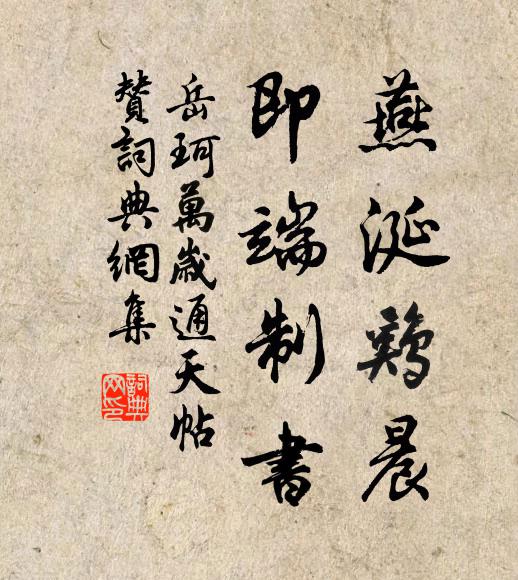 燕涎鷄晨
即端制書
岳珂萬歲通天帖
贊詞典網集
詞典
网印